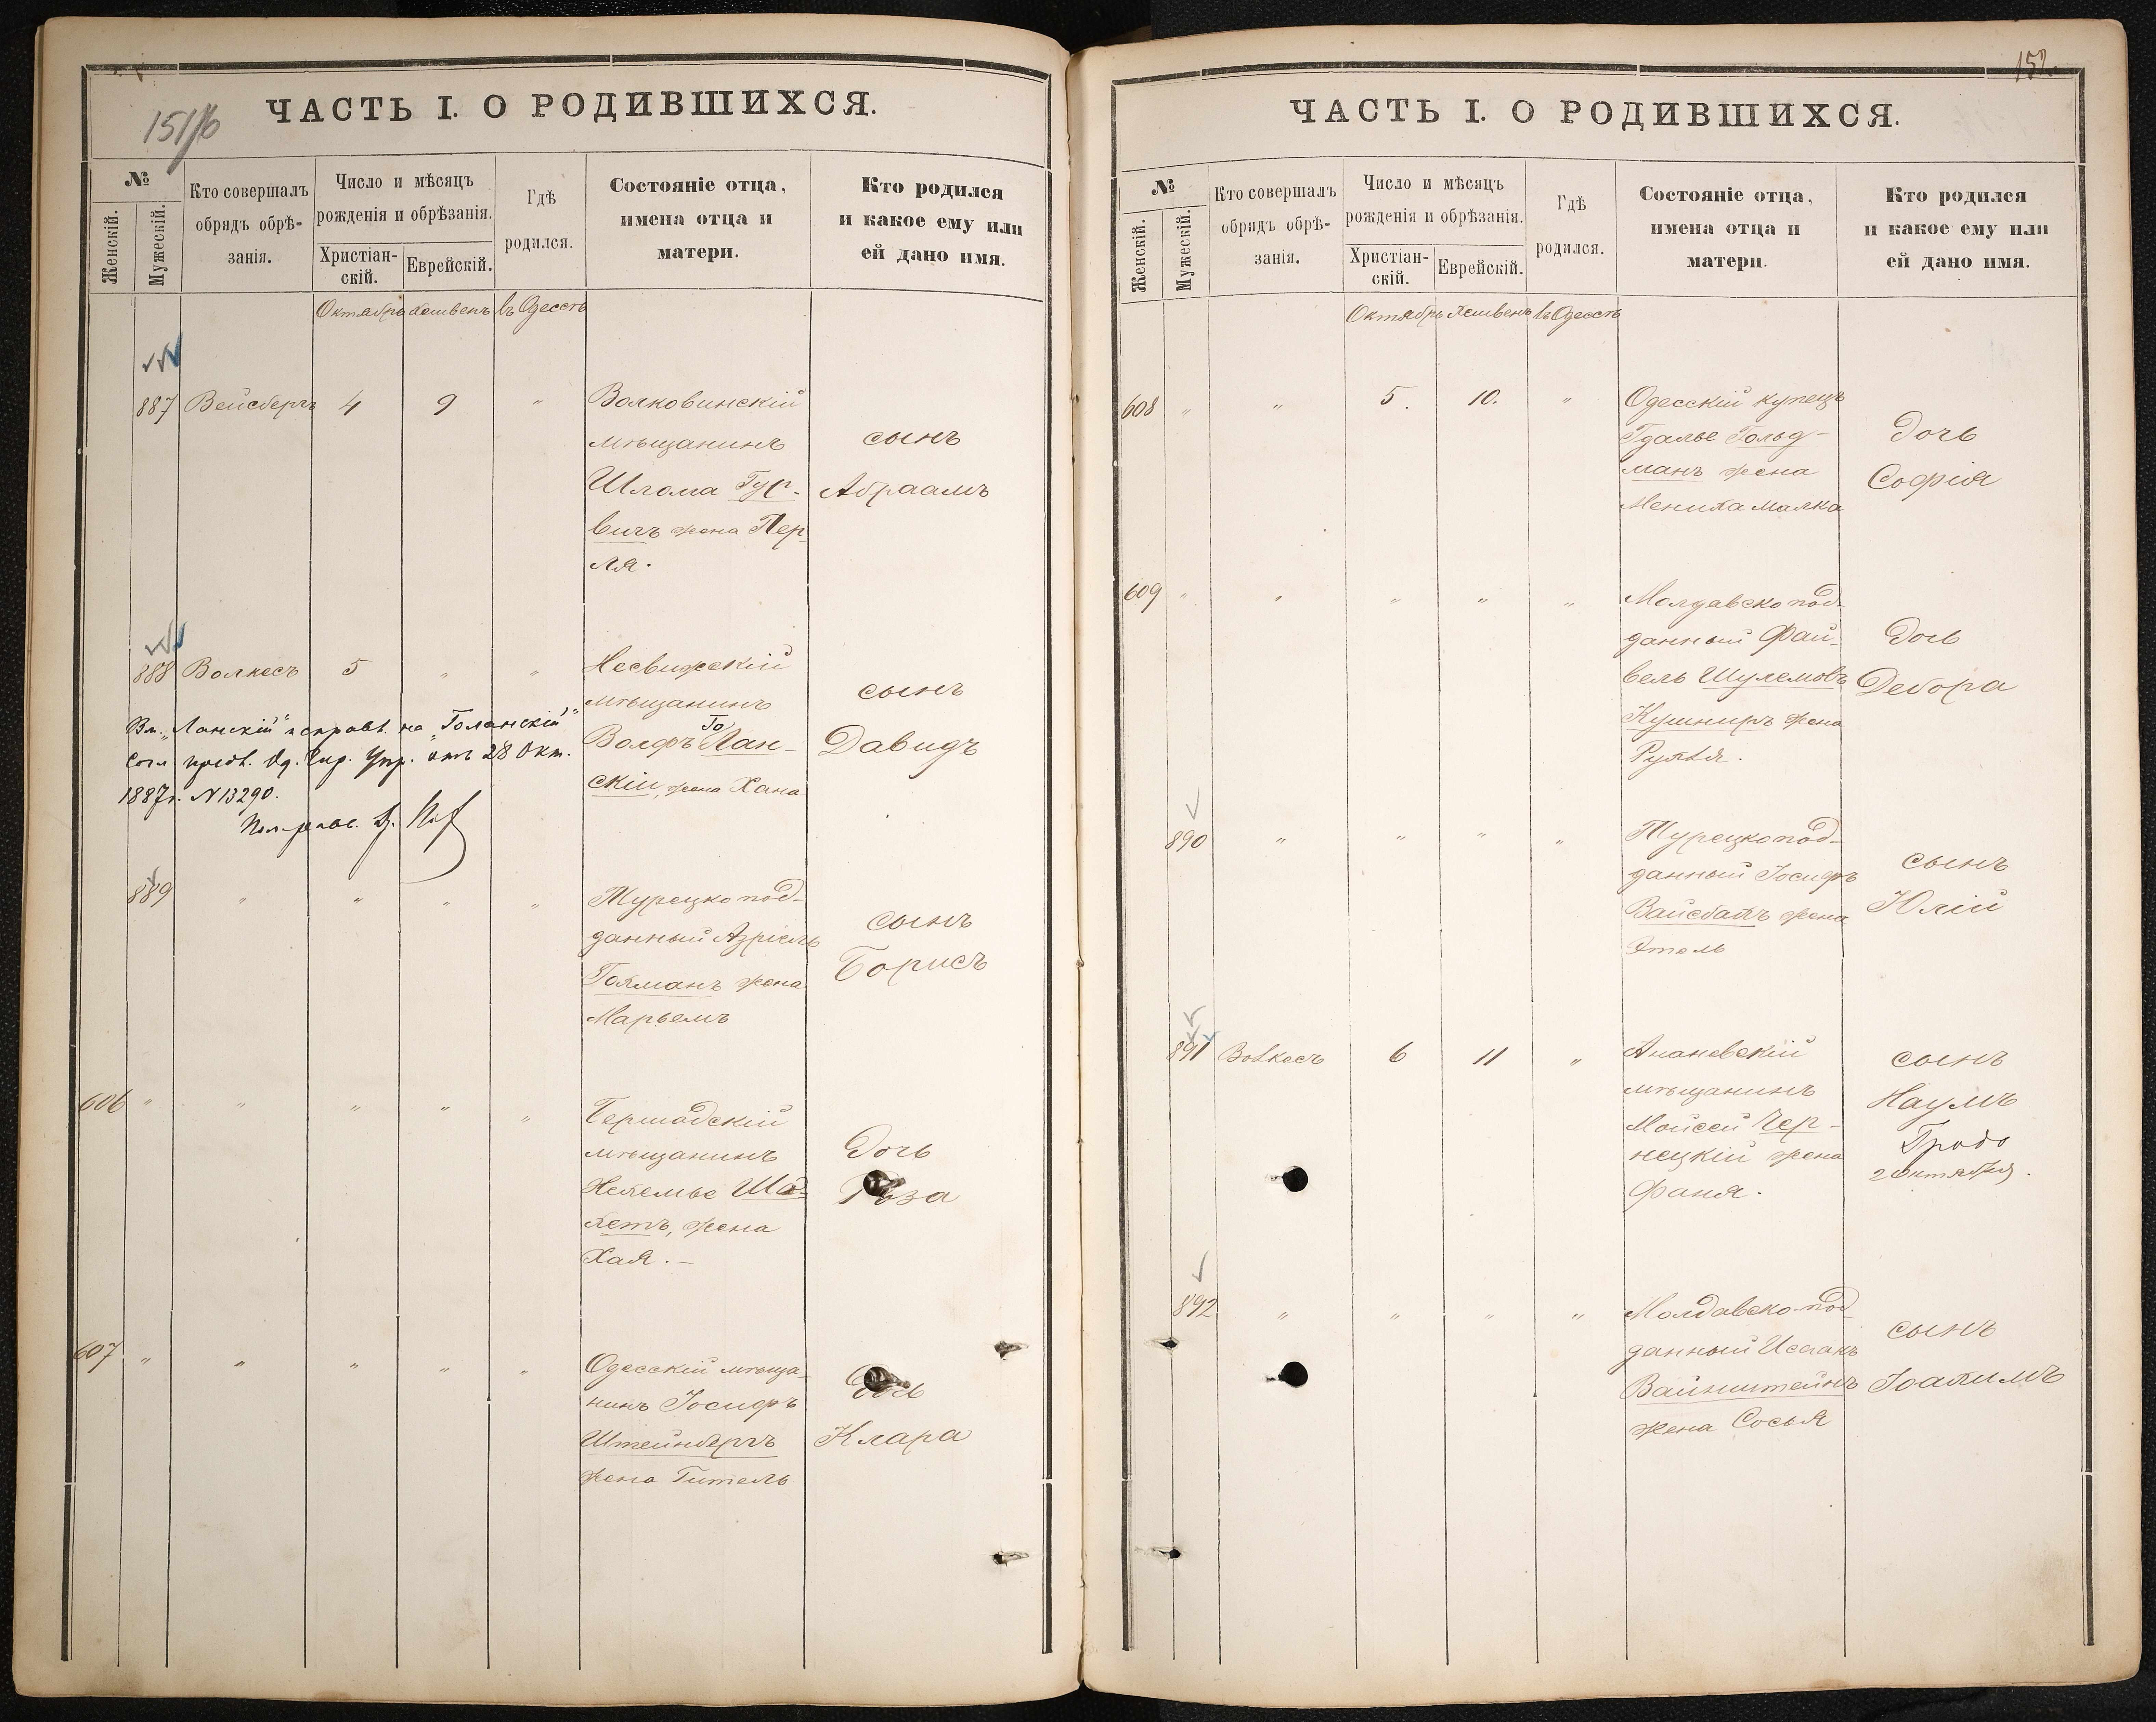 151/б
ЧАСТЬ I. О РОДИВШИХСЯ.
№
Женскій.
Мужескій.
Кто совершалъ
обрядъ обрѣ-
занія.
Число и мѣсяцъ
рожденія и обрѣзанія.
Христіан-
скій.
Еврейскій.
Гдѣ
родился.
Состояніе отца,
имена отца и
матери.
Кто родился
и какое ему или
ей дано имя.
Октябрь Хешвенъ въ Одессѣ
887 Вейсбергъ 4 9 "
Волковинскій
мѣщанинъ
Шлома Гур-
вичъ жена Пер
ля.
сынъ
Абраамъ
888 Волкесъ 5 " "
Несвижскій
мѣщанинъ
Волфъ Го Лан-
скій, жена Хана
сынъ
Давидъ
Вм. „Ланскій" исправл. на „Голанскій"
согл. предл. Од. Гор. Упр. отъ 28 Окт.
1887г. N 13290.
889 " " " "
Турецко под-
данный Азріель
Гойманъ жена
Марьемъ
сынъ
Борисъ
606 " " " " "
Бершадскій
мѣщанинъ
Нехемье Ша-
хетъ, жена
Хая. -
Дочь
Роза
607 " " " " "
Одесскій мѣща-
нинъ Іосифъ
Штейнбергъ
жена Гитель
Дочь
Клара
152
ЧАСТЬ I. О РОДИВШИХСЯ.
№
Женскій.
Мужескій.
Кто совершалъ
обрядъ обрѣ-
занія.
Число и мѣсяцъ
рожденія и обрѣзанія.
Христіан-
скій.
Еврейскій.
Гдѣ
родился.
Состояніе отца,
имена отца и
матери.
Кто родился
и какое ему или
ей дано имя.
Октябрь Хешвенъ въ Одессѣ
608 " " 5. 10. "
Одесскій купецъ
Гдалье Гольд-
манъ жена
Мениха Малка
Дочь
Софія
609 " " " " "
Молдавско под-
данный Фай-
вель Шулемовъ
Кушниръ жена
Рухля.
Дочь
Дебора
890 " " " "
Турецко под-
данный Іосифъ
Вайсбахъ жена
Этель
сынъ
Юлій
891 Волкесъ 6 11 "
Ананевскій
мѣщанинъ
Мойсей Чер-
нецкій жена
Фаня.
сынъ
Наумъ
2 октября.
892 " " " "
Молдавско-под
данный Исаакъ
Вайнштейнъ
жена Сосья
сынъ
Іоахимъ